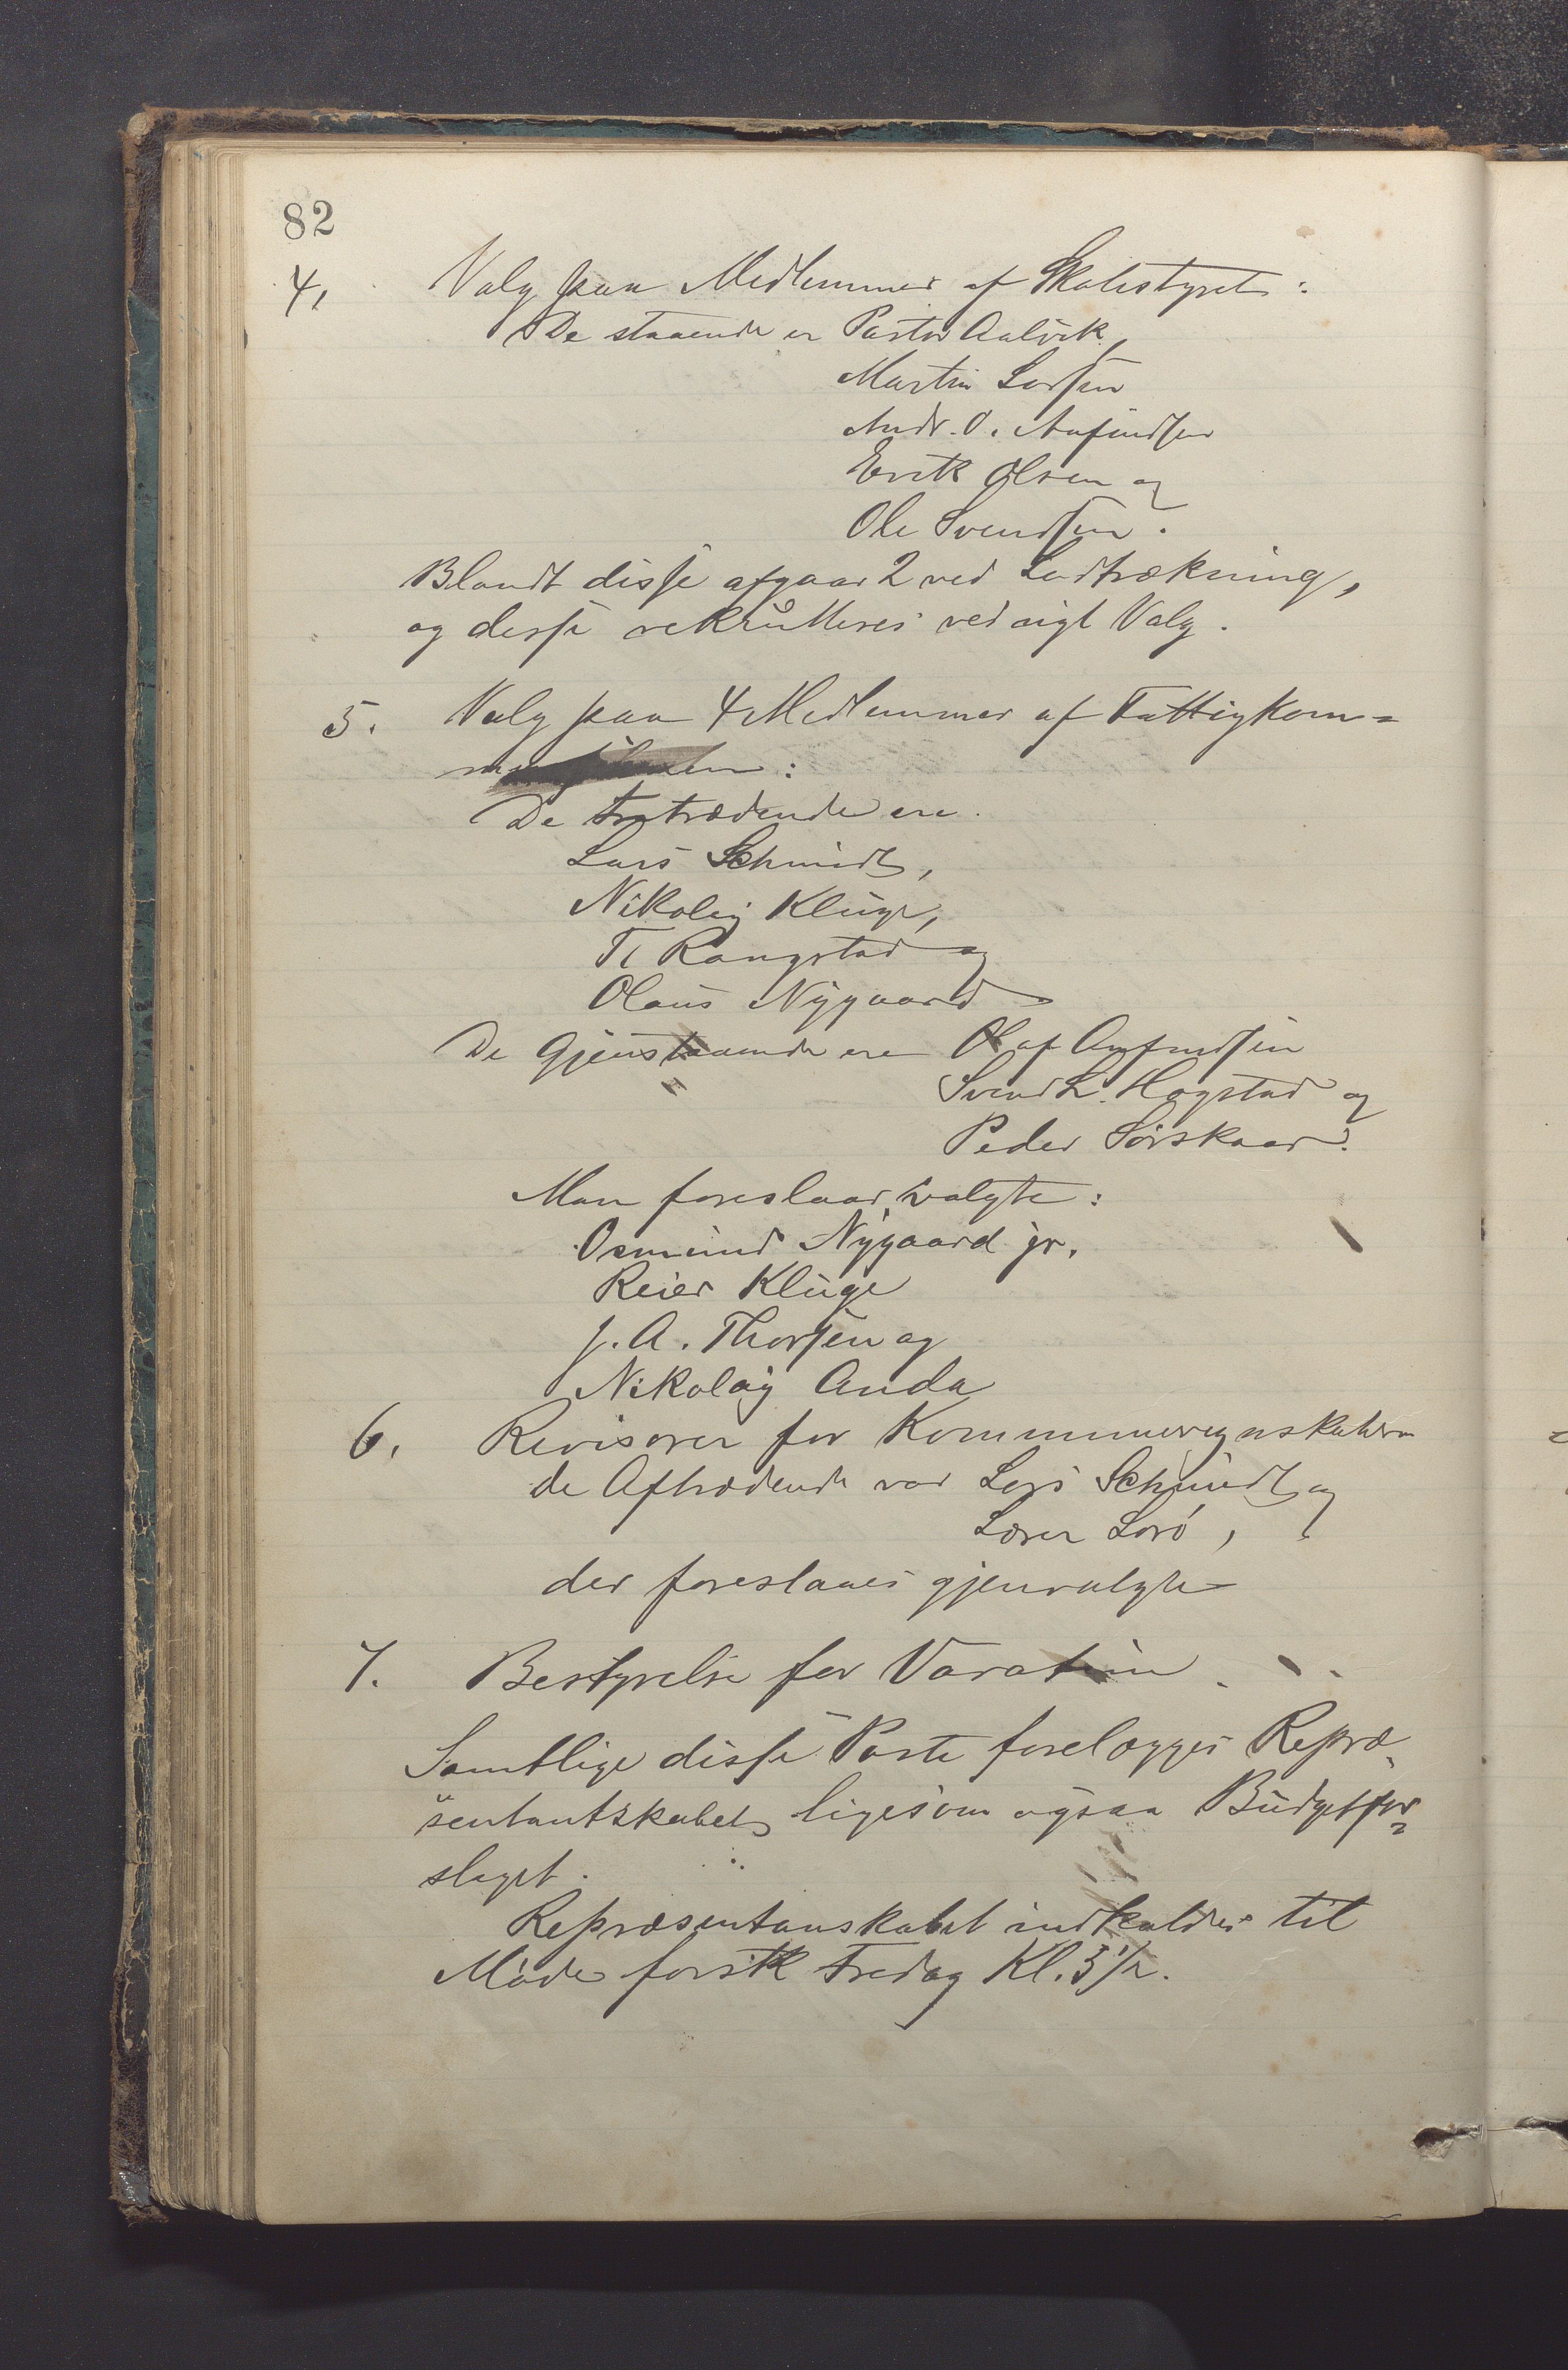 82
4, Valg paa Medlemmer af Skolestyret:
De staaende er Pastor Aalvik,
Martin Larsen
Andr. O. Anfindsen
Erik Olsen og
Ole Svendsen.
Blandt disse afgaar 2 ved Lodtrækning,
og disse rekrutteres ved nyt Valg.
5. Valg paa 4 Medlemmer af Fattigkom=
missionen:
De fratrædende ere
Lars Schmidt,
Nikolai Kluge,
T. Rangstad og
Olaus Nygaard
De Gjenstaaende ere Olaf Anfindsen
Svend L. Hogstad og
Peder Sørskaar.
Man foreslaar valgte:
Osmund Nygaard jr.
Reier Kluge
J. A. Thorsen og
Nikolay Anda
6. Revisorer for Kommuneregnskaberne
de Aftrædende var Lars Schmidt og
Lærer Lorø,
der foreslaaes gjenvalgte
7. Bestyrelse for
Samtlige disse Poste forelægges Repræ-
sentantskabet, ligesom ogsaa Budgetfor=
slaget.
Repræsentanskabet indkaldes til
Møde førstk Fredag Kl. 3 1/2.